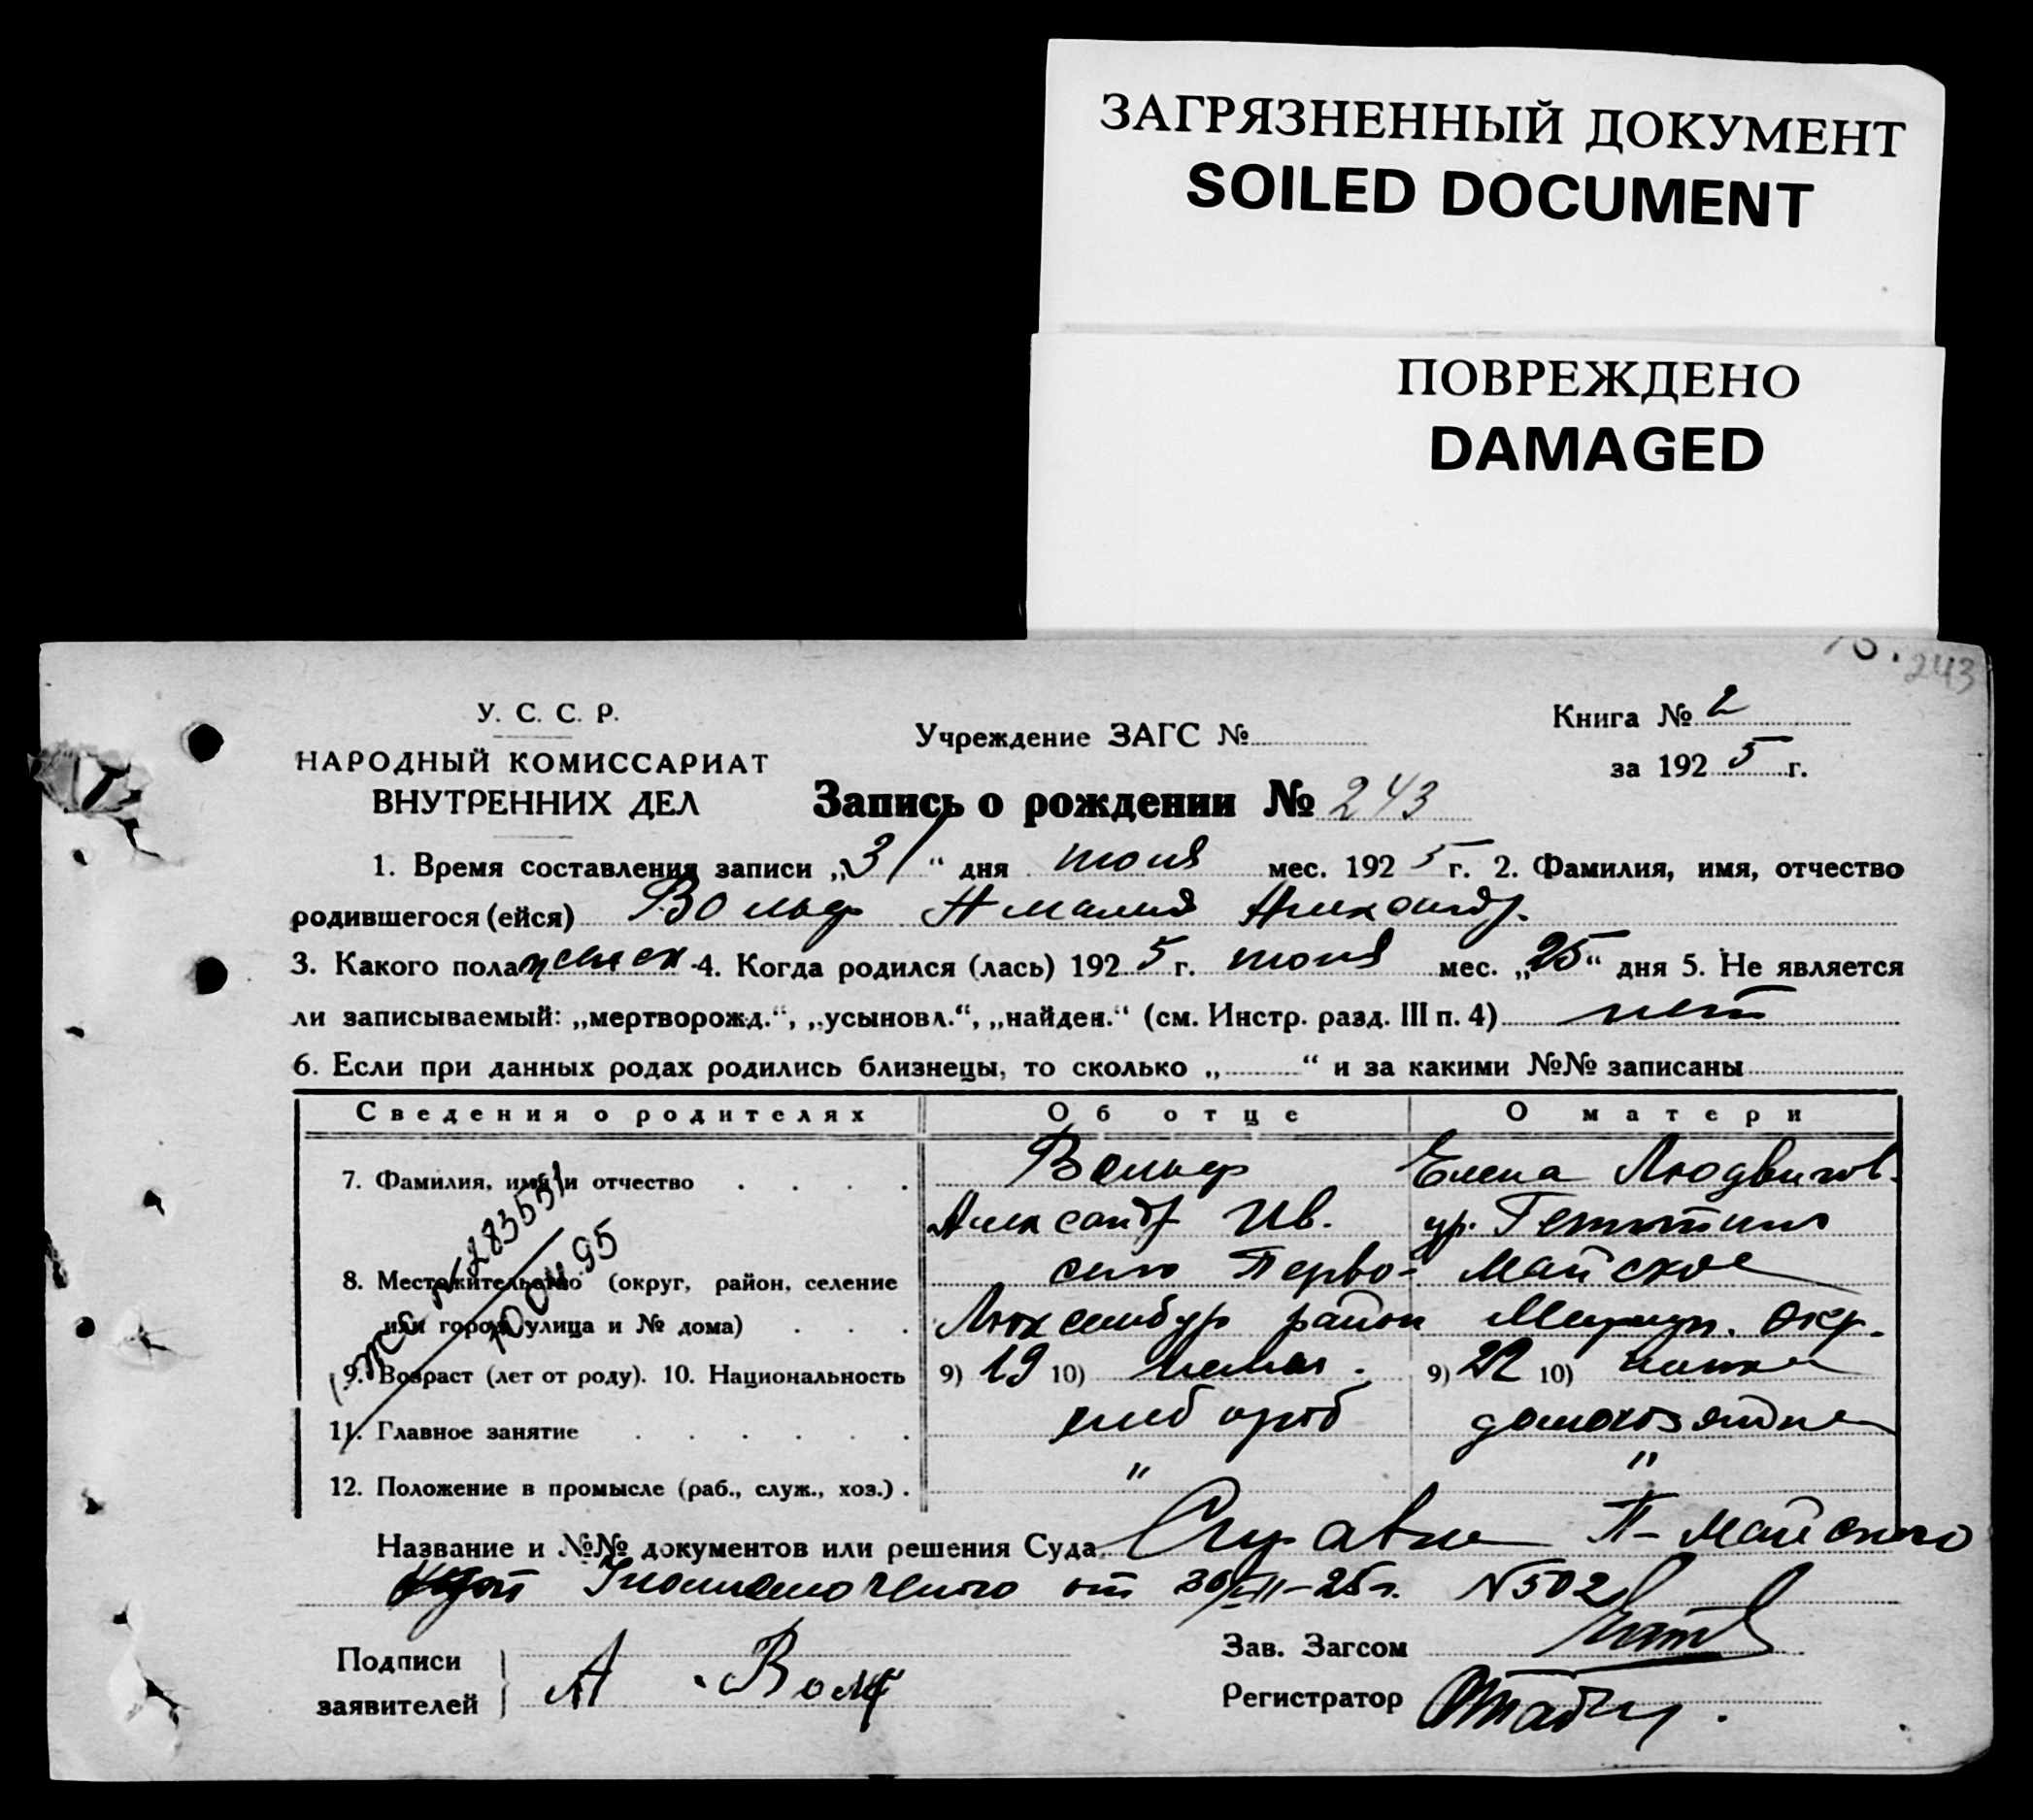 ЗАГРЯЗНЕННЫЙ ДОКУМЕНТ
SOILED DOCUMENT
ПОВРЕЖДЕНО
DAMAGED
243
У. С. С. Р.
НАРОДНЫЙ КОМИССАРИАТ
ВНУТРЕННИХ ДЕЛ
Учреждение ЗАГС №
Книга № 2
за 1925 г.
Запись о рождении № 243
1. Время составления записи „31“ дня июля мес. 1925 г. 2. Фамилия, имя, отчество
родившегося (ейся) Вольф Амалия Александр.
3. Какого пола женск 4. Когда родился (лась) 1925 г. июля мес. „25“ дня 5. Не является
ли записываемый: „мертворожд.“, „усыновл.“, „найден.“ (см. Инстр. разд. III п. 4) нет
6. Если при данных родах родились близнецы, то сколько „ “ и за какими №№ записаны
Сведения о родителях Об отце О матери
7. Фамилия, имя и отчество Вольф Елена Людвигов.
Александр Ив. ур.
8. Местожительство (округ, район, селение село Перво- майское
или город, улица и № дома) Люксембур район Мариуп. окр.
9. Возраст (лет от роду). 10. Национальность 9) 19 10) немец. 9) 22 10) немка
11. Главное занятие хлебороб домохозяйка
12. Положение в промысле (раб., служ., хоз.) . " "
Название и №№ документов или решения Суда Справка П-Майского
от 30/VII-25г. №502
Подписи
заявителей
А. Вольф
Зав. Загсом
Регистратор